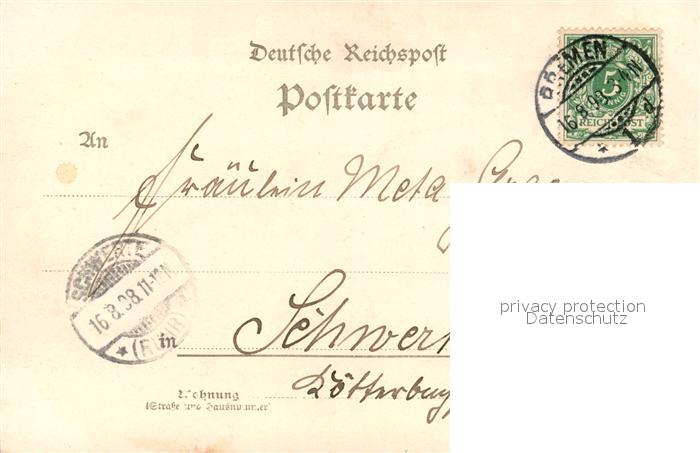 Deutsche Reichspost
Postkarte
BREMEN
16.8.98
1
5
REICHSPOST
An
Fräulein Meta
SCHWERTE
16.8.98.11-12N
(RUHR)
in Schwer
Wohnung
(Straße und Hausnummer)
privacy protection
Datenschutz